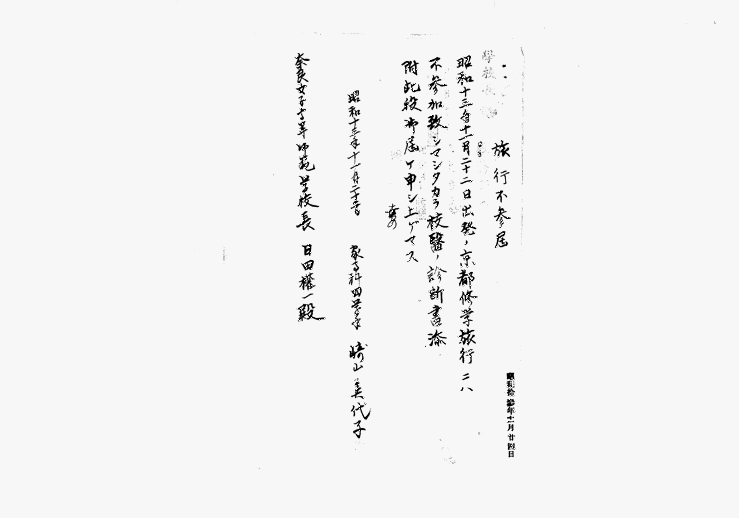 學校長
旅行不参届
昭和十三年十一月二十二日出発ノ京都修学旅行ニハ
不参加致シマシタカラ校醫ノ診断書添
附此段御届ケ申シ上ゲマス
昭和十三年十一月二十三日 家事科四学年 崎山美代子
奈良女子高等師範学校長 日田權一殿
昭和拾參年十一月廿四日